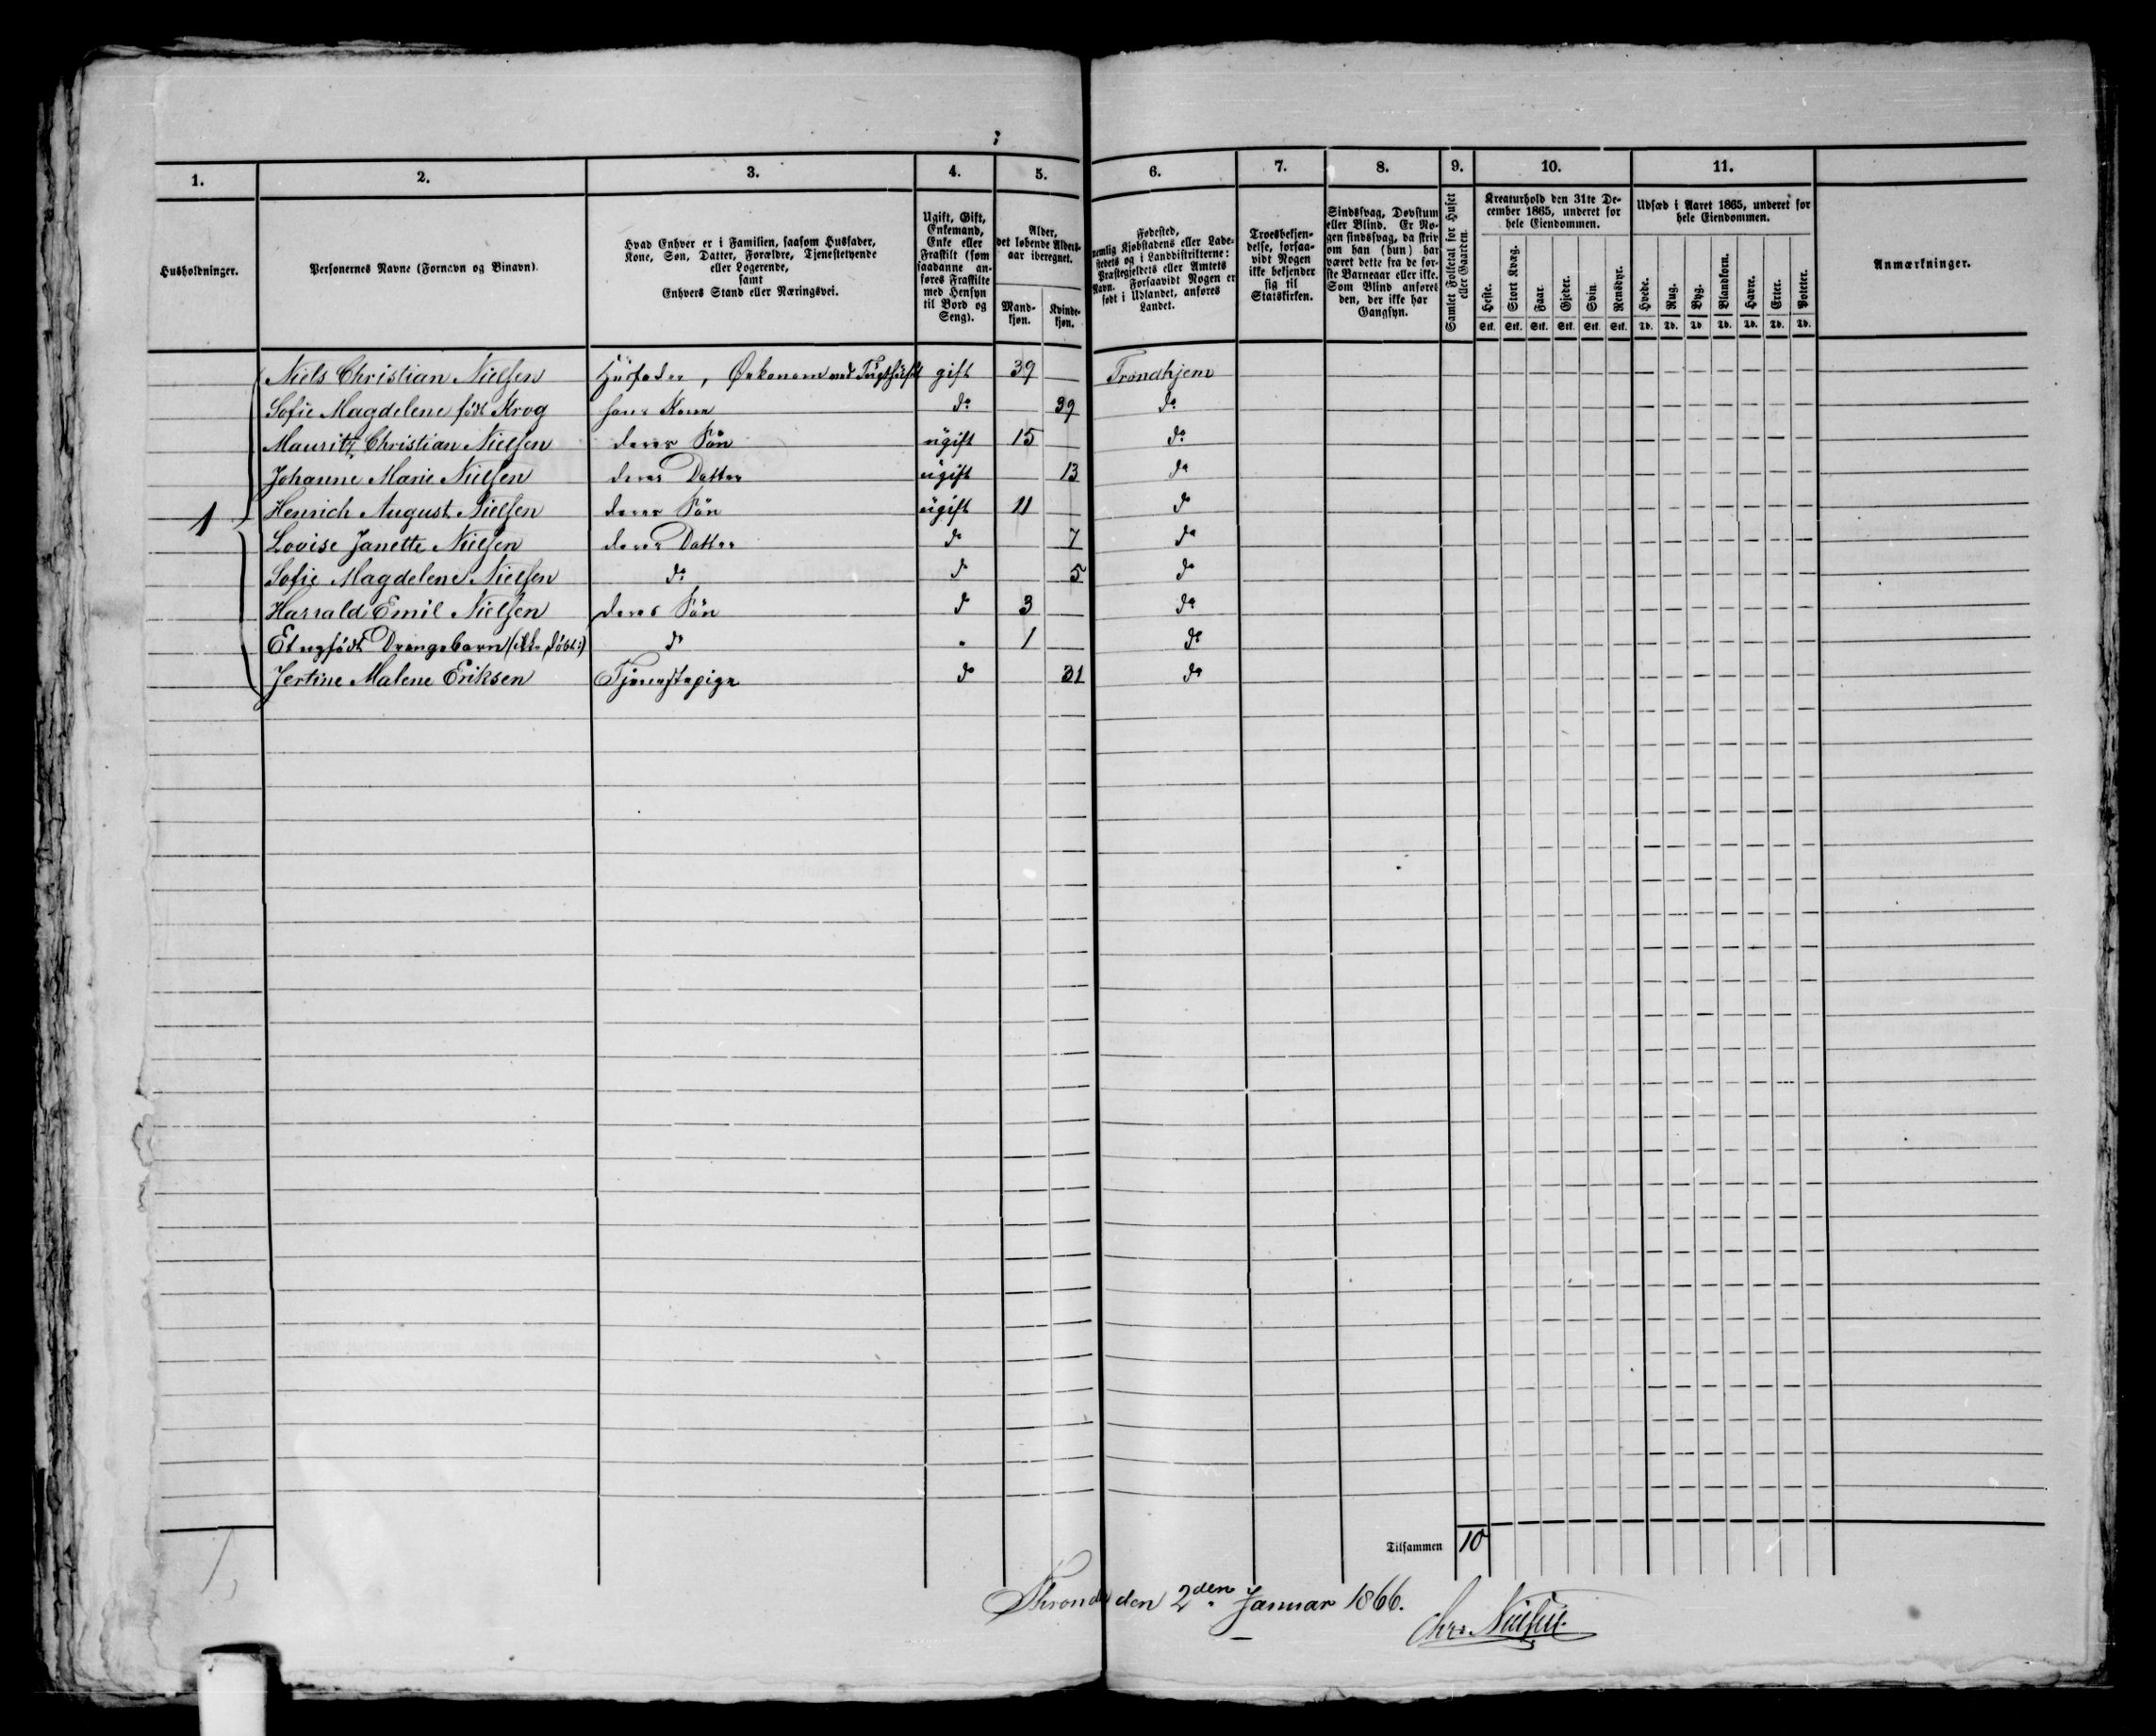 1. 2. 3. 4. 5. 6. 7. 8. 9. 10. 11.
Husholdninger.
Personernes Navne (Fornavn og Binavn).
Hvad Enhver er i Familien, saasom Husfader,
Kone, Søn, Datter, Forældre, Tjenestetyende
eller Logerende,
samt
Enhvers Stand eller Næringsvei.
Ugift, Gift,
Enkemand,
Enke eller
Fraskilt (som
saadanne an-
føres Fraskilte
med Hensyn
til Bord og
Seng).
Alder,
det løbende Alders-
aar iberegnet.
Mand-
kjøn.
Kvinde-
kjøn.
Fødested,
nemlig Kjøbstadens eller Lade-
stedets og i Landdistrikterne:
Præstegjeldets eller Amtets
Navn. Forsaavidt Nogen er
født i Udlandet, anføres
Landet.
Troesbekjen-
delse, forsaa-
vidt Nogen
ikke bekjender
sig til
Statskirken.
Sindssvag, Døvstum
eller Blind. Er No-
gen sindssvag, da skriv
om han (hun) har
været dette fra de før-
ste Barneaar eller ikke.
Som Blind anføres
den, der ikke har
Gangsyn.
Samlet Folketal for Huset
eller Gaarden.
Kreaturhold den 31te De-
cember 1865, underet for
hele Eiendommen.
Heste. Stort Kvæg. Faar. Gjeder. Svin. Rensdyr.
Stk. Stk. Stk. Stk. Stk. Stk.
Udsæd i Aaret 1865, underet for
hele Eiendommen.
Hvede. Rug. Byg. Blandkorn. Havre. Erter. Poteter.
Td. Td. Td. Td. Td. Td. Td.
Anmærkninger.
Niels Christian Nielsen Husfader, Økonom ved Tugthuset gift 39 Trondhjem
Sofie Magdelene født Krog hans Kone do 39 do
Mauritz Christian Nielsen deres Søn ugift 15 do
Johanne Marie Nielsen deres Datter ugift 13 do
1 Henrich August Nielsen deres Søn ugift 11 do
Lovise Janette Nielsen deres Datter do 7 do
Sofie Magdelene Nielsen do do 5 do
Harrald Emil Nielsen deres Søn do 3 do
Et nyfødt Drengebarn (ikke døbt:) do " 1 do
Jertine Malene Eriksen Tjenestepige do 31 do
Tilsammen 10
Thrond. den 2den Januar 1866.
Chr. Nielsen